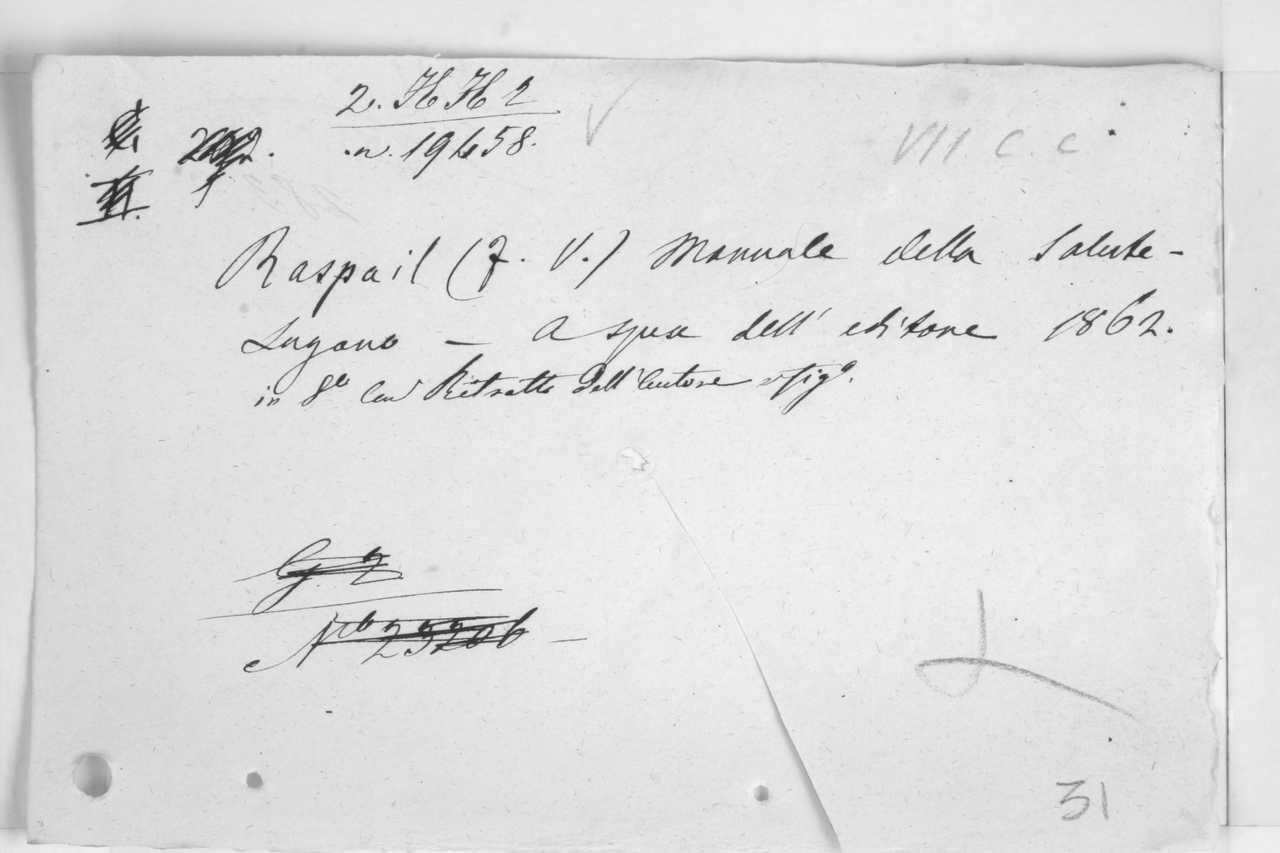 2. HH 2
n. 19458.
VII C. C
Raspail (F. V.) Manuale della Salute-
Lugano - A spese dell' editore 1862.
in 8º Con Ritratto dell'Autore e figº.
G. 2
Nº 23206 -
31